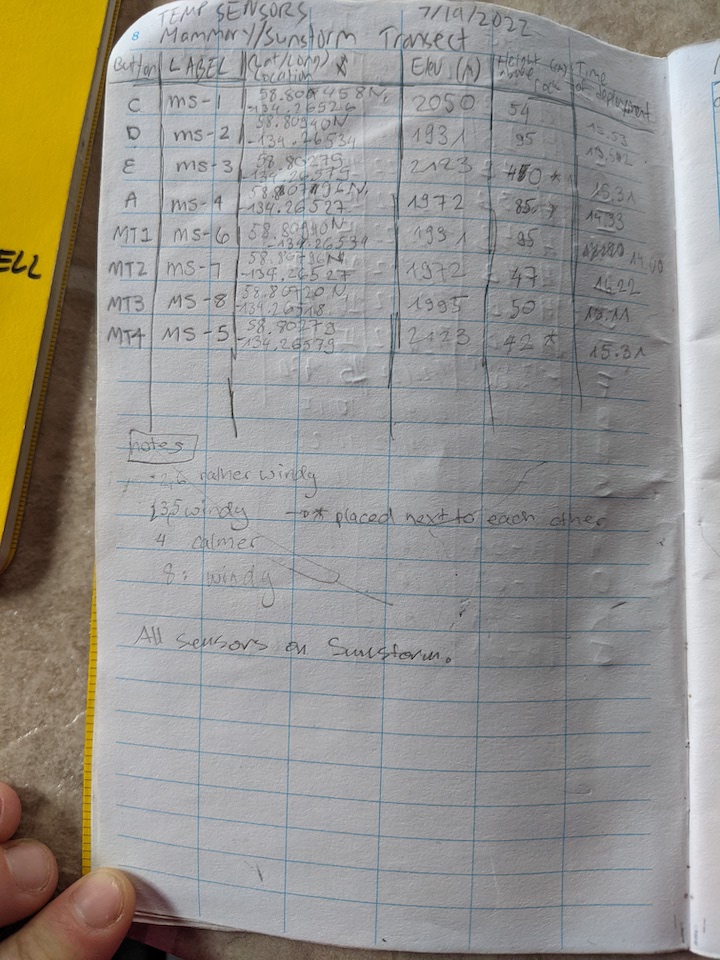 ELL
TEMP SENSORS 7/19/2022
8 Mammary/Sunstorm Transect
Button LABEL (Lat/Long) Location Elev. (ft) Height (cm) above rock Time of deployment
C MS-1 N, -134.26526 2050 54
D MS-2 58.80940N -134.26534 1931 95
E MS-3 58.80279 -134.26579 2123 *
A MS-4 N, -134.26527 1972 85 * 14.33
MT1 MS-6 58.80940N -134.26534 1931 95 14.00
MT2 MS-7 -134.26527 1972 47 14.22
MT3 MS-8 58.80920N 1995 50
MT4 MS-5 58.80279 -134.26579 2123 42 * 15.31
notes
2,6 rather windy
3,5 windy → * placed next to each other
4 calmer
8: windy
All sensors on Sunstorm.